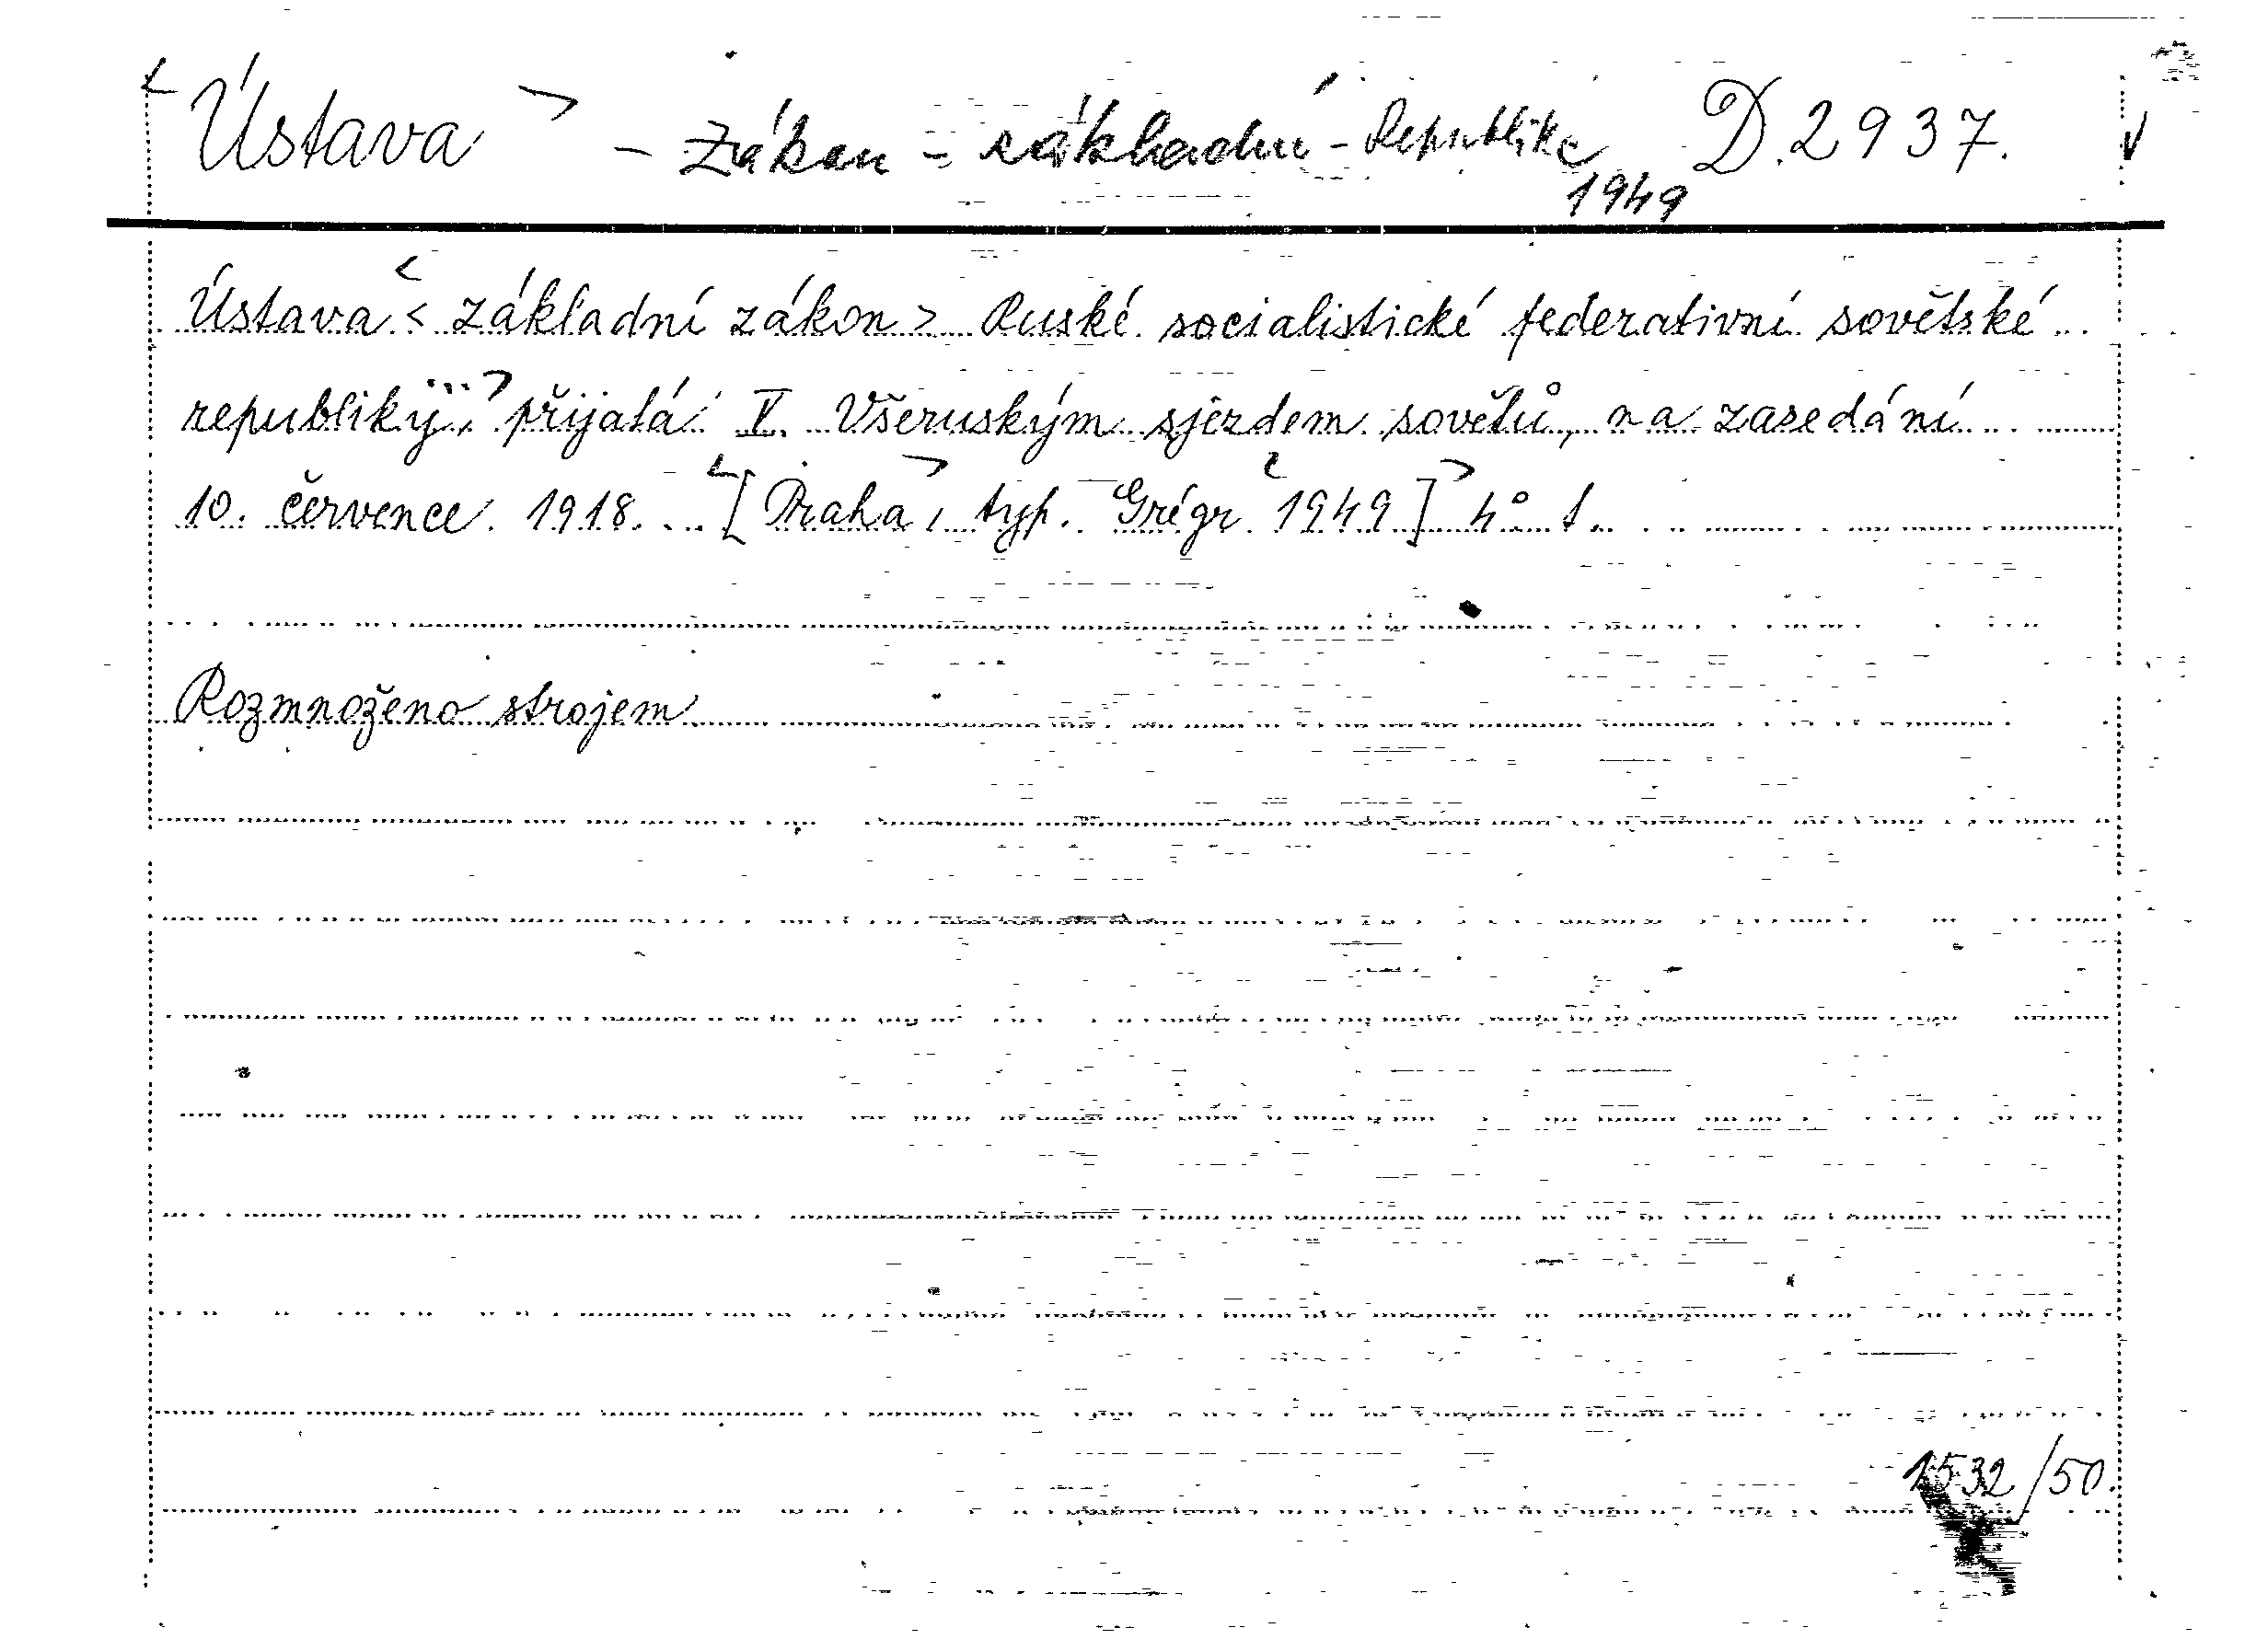 Ústava - zákon - základní - Republika D.2937.
1949
Ústava < základní zákon > Ruské socialistické federativní sovětské
republiky, přijatá V. Všeruským sjezdem sovětů, na zasedání
10. července 1918. [Praha, typ. Grégr 1949] 4° f.
Rozmnoženo strojem
1532/50.